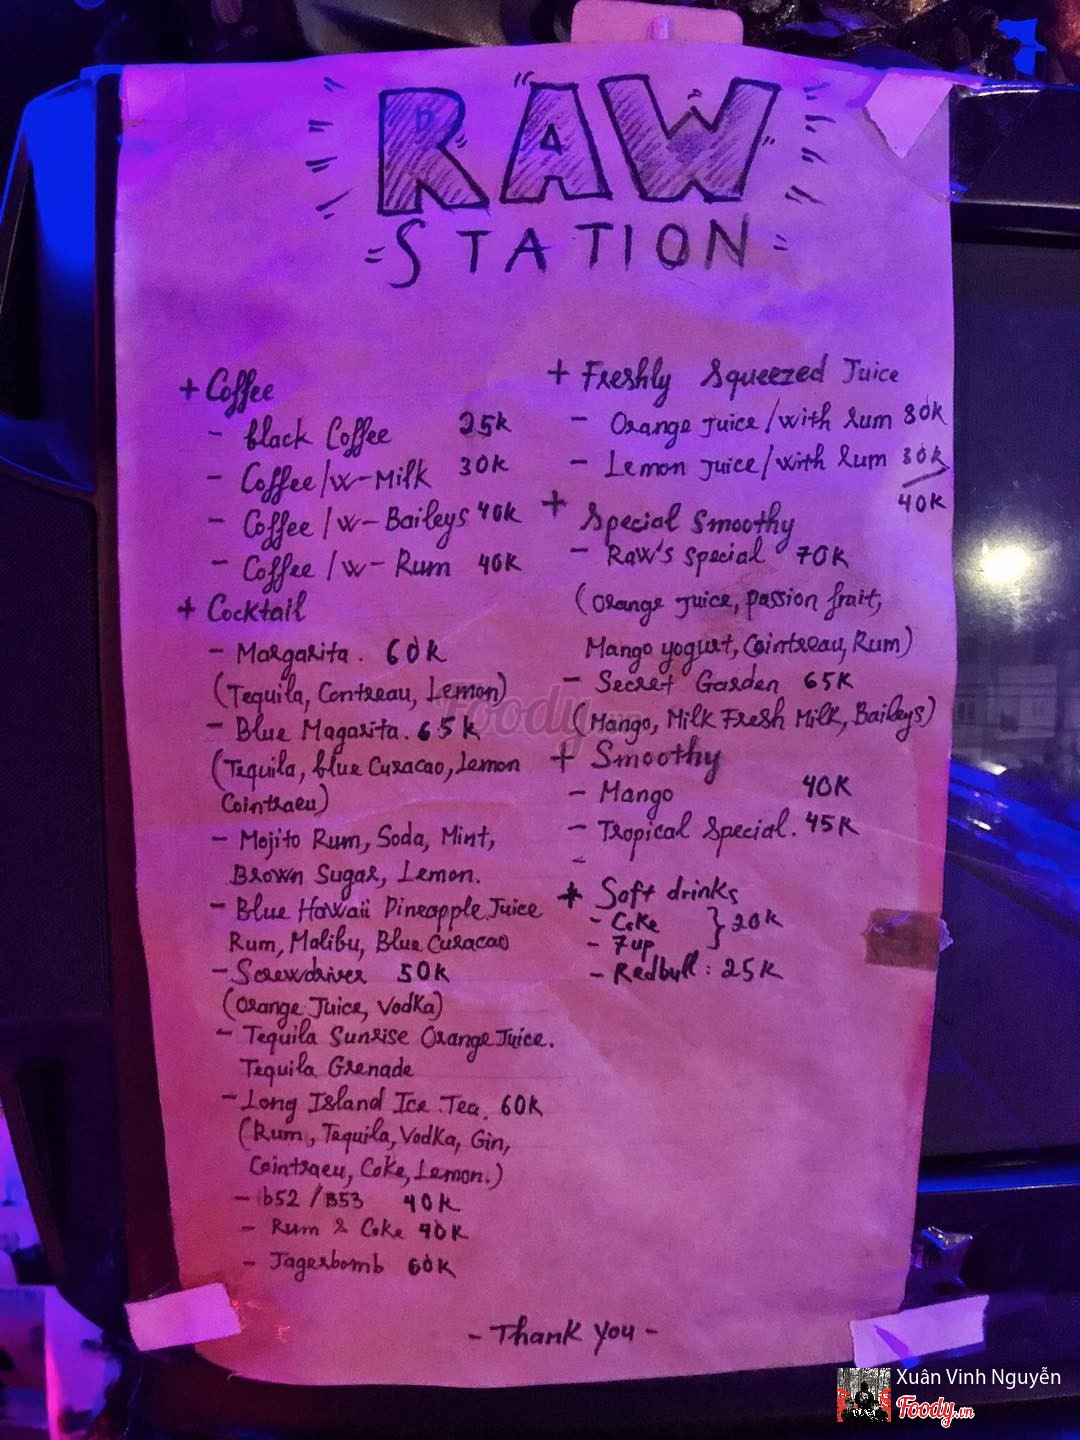 RAW
STATION
+ Coffee
- black Coffee 25k
- Coffee/w-Milk 30k
- Coffee/w-Baileys 40k
- Coffee/w-Rum 40k
+ Cocktail
- Margarita. 60k
(Tequila, Contreau, Lemon)
- Blue Magarita. 65k
(Tequila, blue Curacao, Lemon
Cointraeu)
- Mojito Rum, Soda, Mint,
Brown Sugar, Lemon.
- Blue Hawaii Pineapple Juice
Rum, Malibu, Blue Curacao
- Screwdriver 50k
(Orange Juice, Vodka)
- Tequila Sunrise Orange Juice.
Tequila Grenade
- Long Island Ice Tea. 60k
(Rum, Tequila, Vodka, Gin,
Cointraeu, Coke, Lemon.)
- b52/B53 40k
- Rum & Coke 40k
- Jagerbomb 60k
+ Freshly Squeezed Juice
- Orange Juice/with Rum 30k
- Lemon Juice/with Rum 30k
40k
+ Special Smoothy
- Raw's special 70k
(Orange Juice, passion frait,
Mango yogurt, Cointreau, Rum)
- Secret Garden 65k
(Mango, Milk Fresh Milk, Baileys)
+ Smoothy
- Mango 40k
- Tropical Special. 45k
-
+ Soft drinks
- Coke } 20k
- 7up
- Redbull: 25k
- Thank you -
Foody.vn
Xuân Vinh Nguyễn
Foody.vn